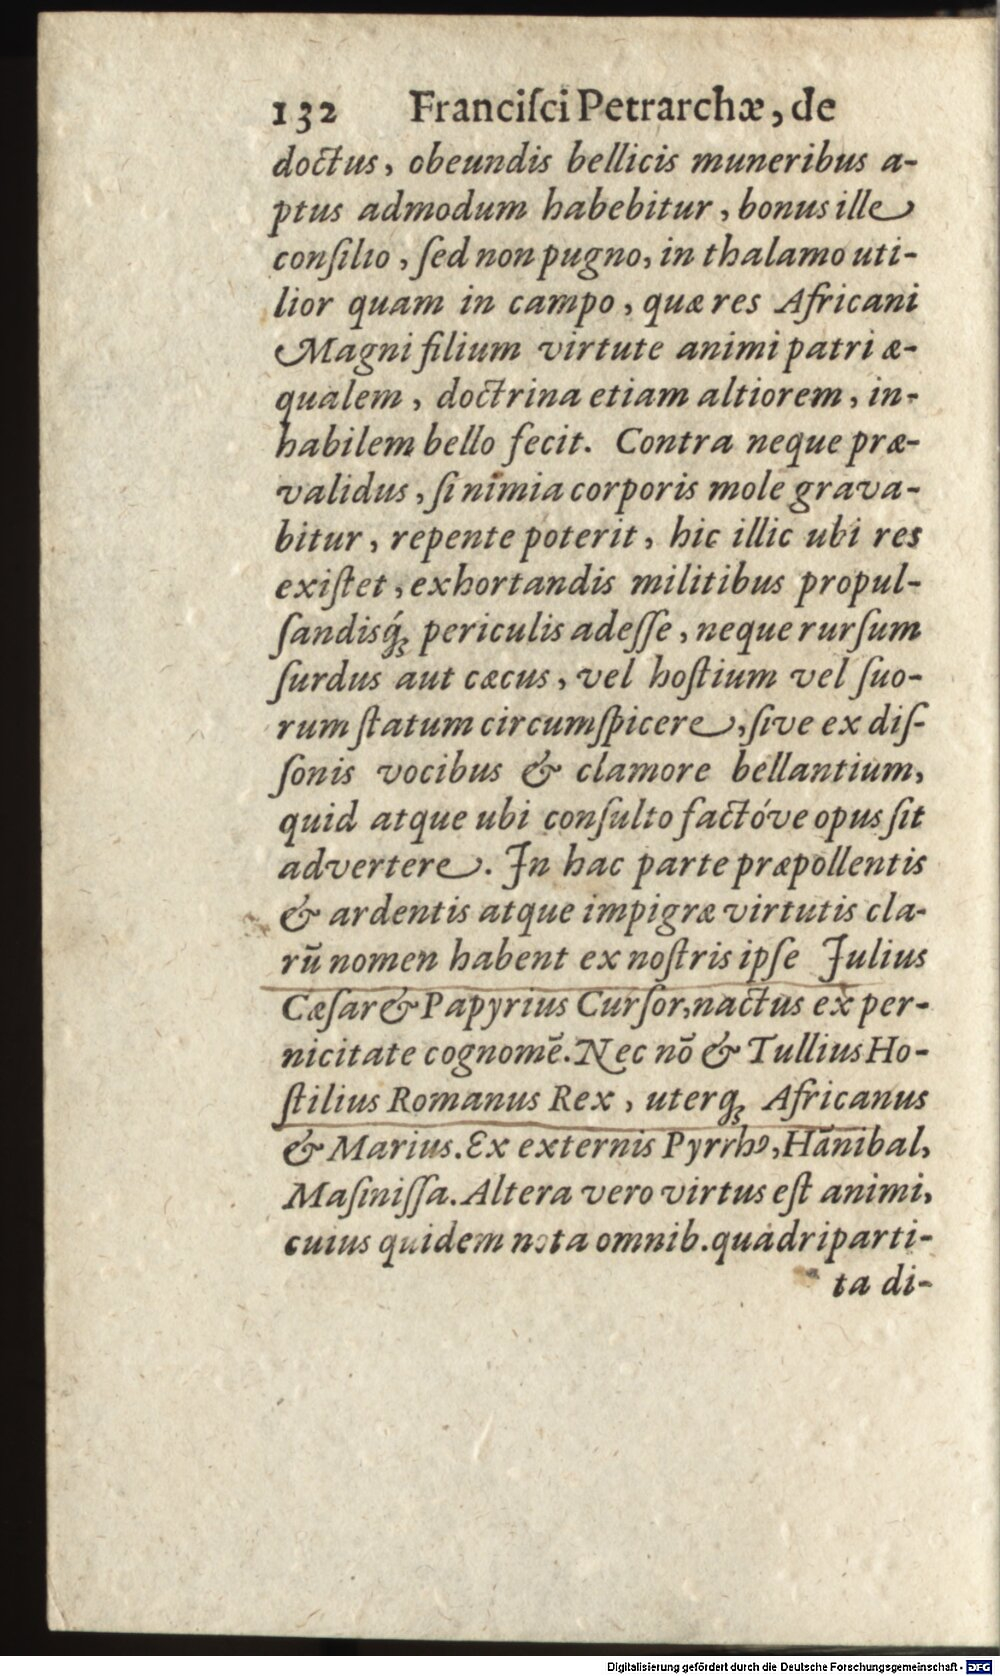 132 Franciſci Petrarchæ, de
doctus, obeundis bellicis muneribus a-
ptus admodum habebitur, bonus ille
conſilio, ſed non pugno, in thalamo uti-
lior quam in campo, quæ res Africani
Magni filium virtute animi patri æ-
qualem, doctrina etiam altiorem, in-
habilem bello fecit. Contra neque præ-
validus, ſi nimia corporis mole grava-
bitur, repente poterit, hic illic ubi res
exiſtet, exhortandis militibus propul-
ſandisq́ꝫ periculis adeſſe, neque rurſum
ſurdus aut cæcus, vel hoſtium vel ſuo-
rum ſtatum circumſpicere, ſive ex diſ-
ſonis vocibus & clamore bellantium,
quid atque ubi conſulto factóve opus ſit
advertere. In hac parte præpollentis
& ardentis atque impigræ virtutis cla-
rū nomen habent ex noſtris ipſe Julius
Cæſar & Papyrius Curſor, nactus ex per-
nicitate cognomē. Nec nō & Tullius Ho-
ſtilius Romanus Rex, uterqꝫ Africanus
& Marius. Ex externis Pyrrhꝰ, Hānibal,
Maſiniſſa. Altera vero virtus eſt animi,
cuius quidem nota omnib. quadriparti-
ta di-
Digitalisierung gefördert durch die Deutsche Forschungsgemeinschaft - DFG